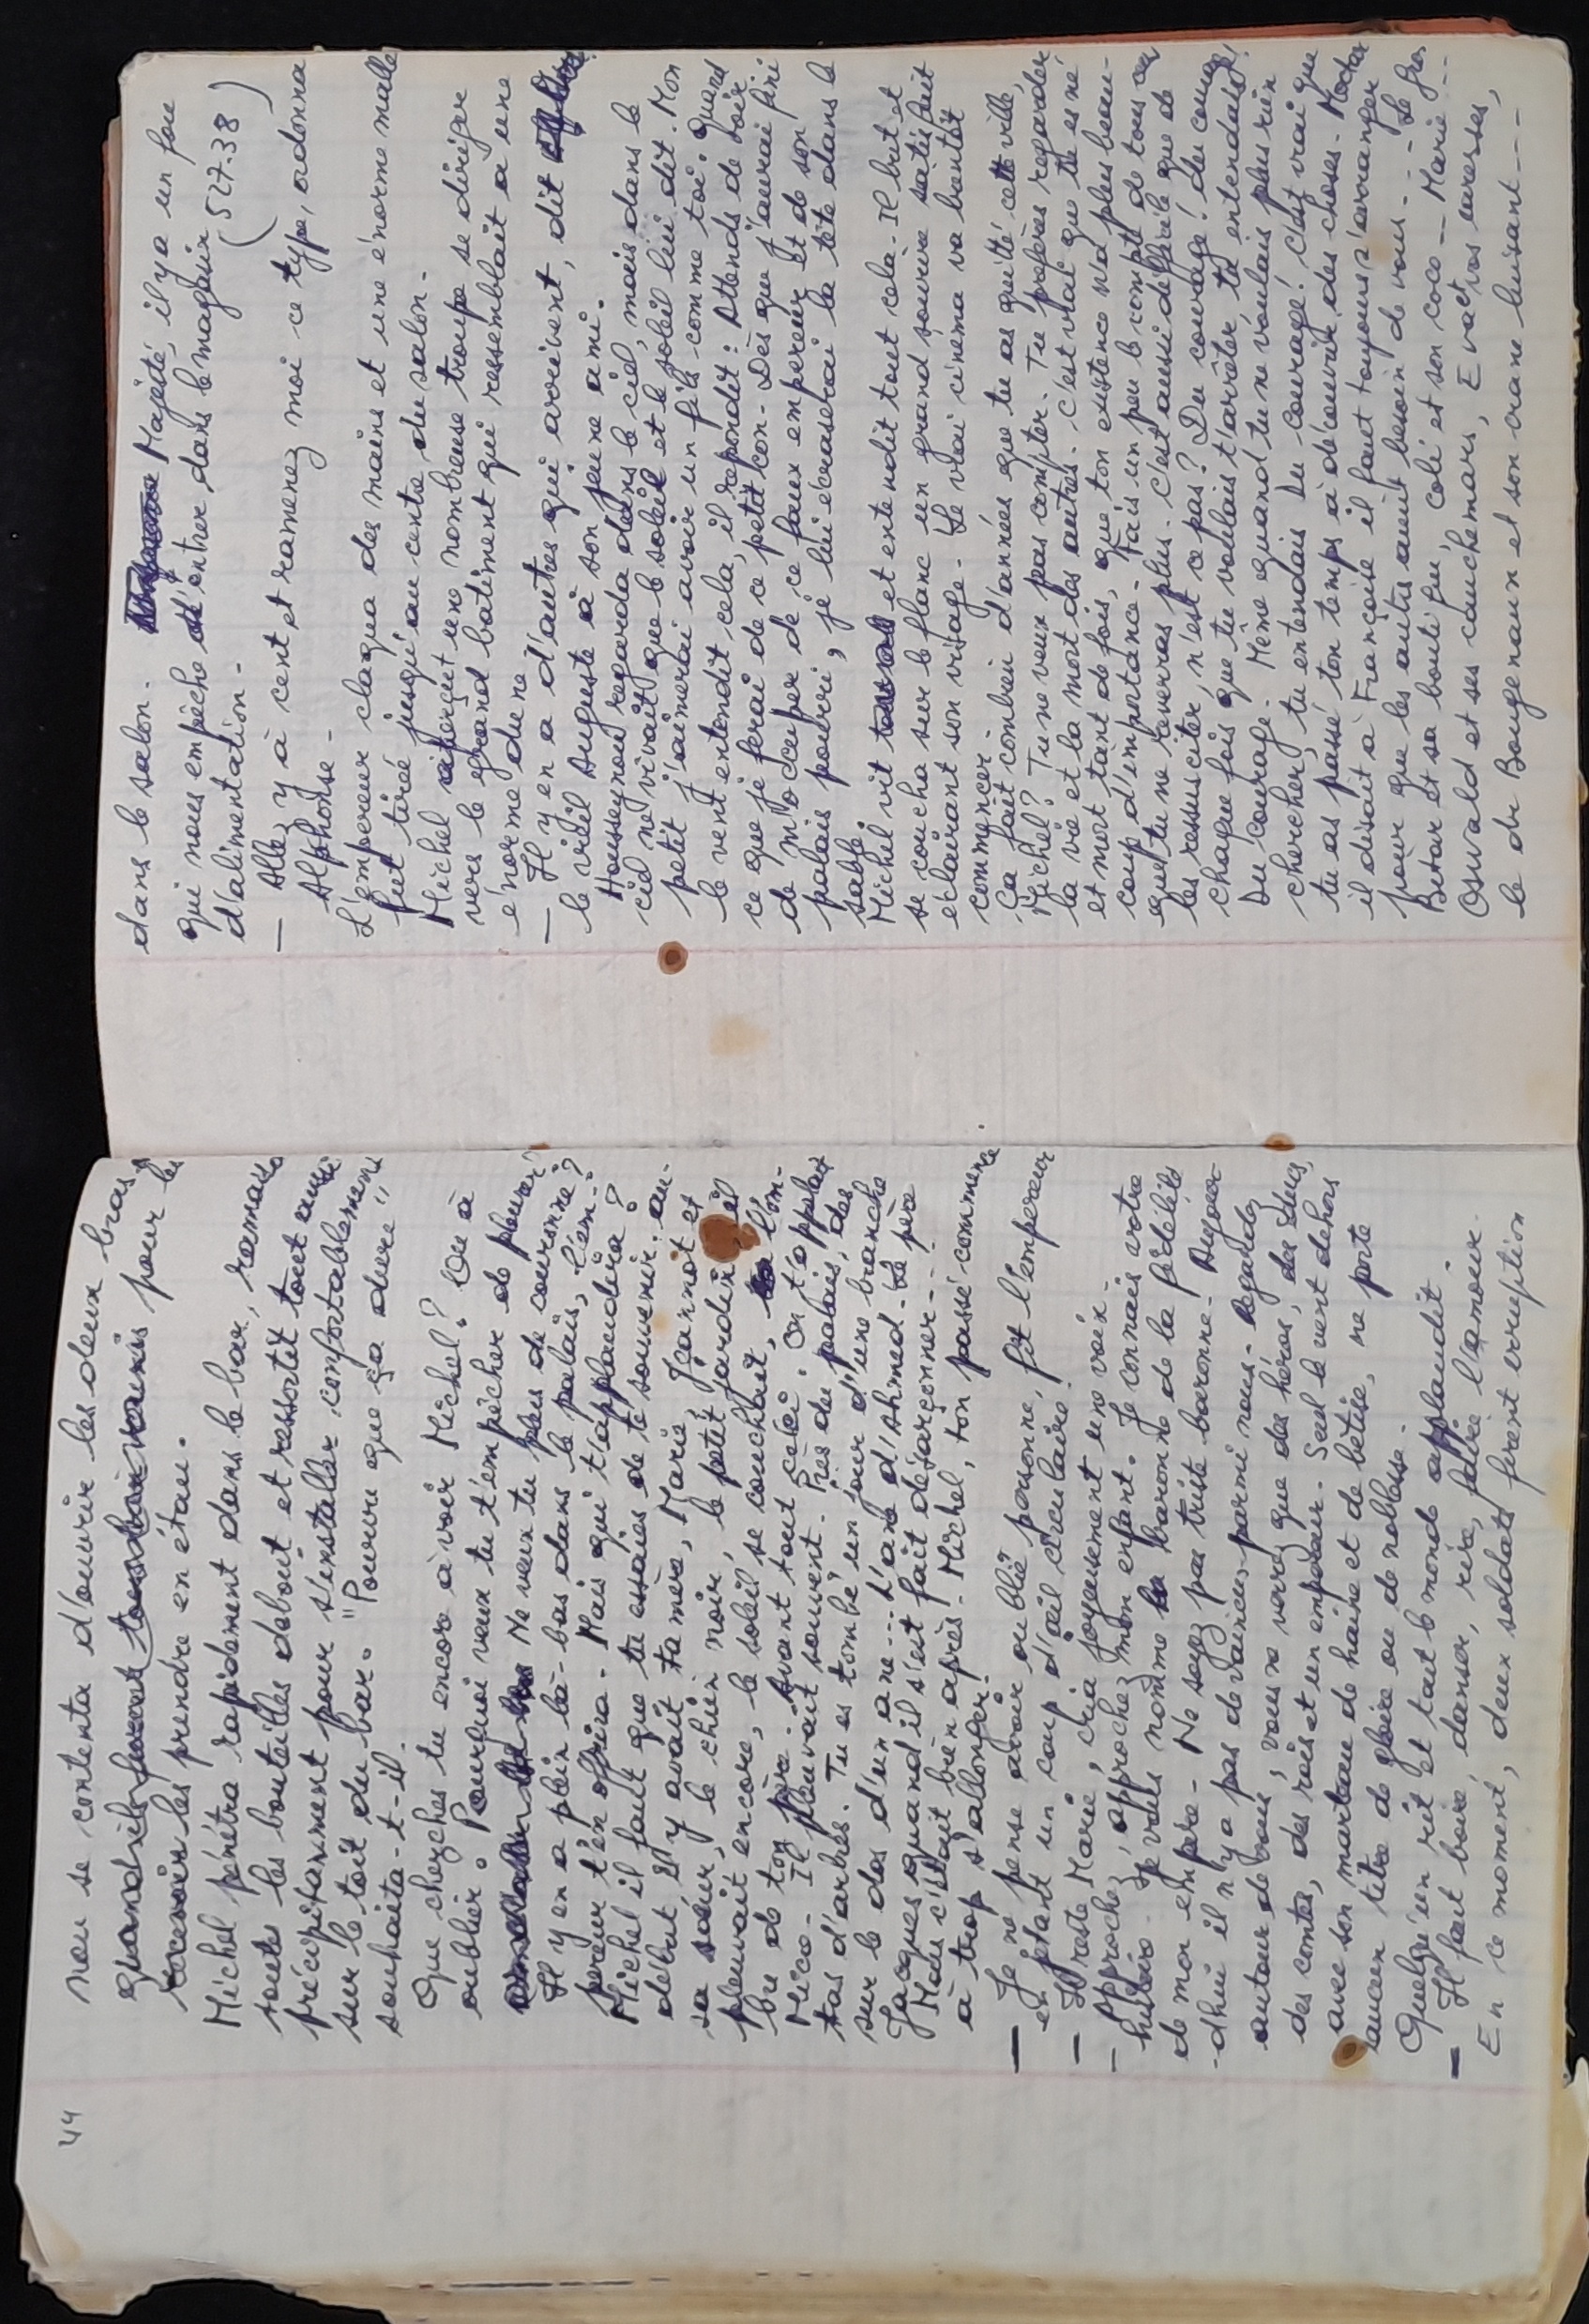 44
nou se contenta d'ouvrir les deux bras,
quand ils furent tous bien réunis pour les
recevoir les prendre en étau.
Michel pénétra rapidement dans le bar, ramassa
toutes les bouteilles debout et ressortit tout aussi
précipitamment pour s'installer confortablement
sur le toit du bar. "Pourvu que ça dure"
souhaita-t-il.
Que cherches tu encore à voir Michel? Ou à
oublier? Pourquoi veux tu t'empêcher de pleurer?
Ne veux tu plus de couronne?
Il y en a plein là-bas dans le palais, l'em-
pereur t'en offrira. Mais qui t'applaudira?
Michel il faut que tu essaies de te souvenir. Au-
début, il y avait ta mère, Marie, Jeannot et
sa sœur, le chien noir, le petit jardin, il
pleuvait encore, le soleil se couchait, l'om-
bre de ton père. Avant tout celà. On t'appelait
Mico. Il pleuvait souvent. Près du palais, des
tas d'arbres. Tu es tombé un jour d'une branche
sur le dos d'un ane... L'ane d'Ahmed. Le père
Jacques quand il s'est fait désarçonner...
Mais c'était bien après. Michel, ton passé commence
à trop s'allonger.
— Je ne pense avoir oublié personne, fit l'empereur
en jetant un coup d'œil circulaire.
— Il reste Marie, cria joyeusement une voix.
— Approchez, approchez mon enfant. Je connais votre
histoire. Je vous nomme la baronne de la fidélité
de mon empire. Ne soyez pas triste baronne. Aujour-
-dhui il n'y a pas de vaincus parmi nous. Regardez
autour de vous, vous ne verrez que des héros, des ducs,
des comtes, des rois et un empereur. Seul le vent dehors
avec son manteau de haine et de bêtise, ne porte
aucun titre de gloire ou de noblesse.
Quelqu'un rit et tout le monde applaudit.
— Il faut boire, danser, rire, faire l'amour.
En ce moment, deux soldats firent irruption
dans le salon. Majesté, il y a un fou
qui nous empêche d'entrer dans le magasin
d'alimentation. (527.38)
— Allez y à cent et ramenez moi ce type, ordonna
Alphonse.
L'empereur claqua des mains et une énorme malle
fut tirée jusqu'au centre du salon.
Michel aperçut une nombreuse troupe se diriger
vers le grand batiment qui ressemblait à une
énorme dune
— Il y en a d'autres qui arrivent, dit
le vieil Auguste à son jeune ami.
Housseynou regarda dans le ciel, mais dans le
ciel ne vivait que le soleil et le soleil lui dit. Mon
petit j'aimerai avoir un fils comme toi. Quand
le vent entendit cela, il repondit: Attends de voir
ce que je ferai de ce petit con. Dès que j'aurai fini
de m'occuper de ce faux empereur et de son
palais pourri, je lui écraserai la tête dans le
sable.
Michel vit et entendit tout cela. Il but et
se coucha sur le flanc un grand sourire satisfait
éclairant son visage. Le vrai cinéma va bientôt
commencer.
Ça fait combien d'années que tu as quitté cette ville,
Michel? Tu ne veux pas compter. Tu préfères regarder
la vie et la mort des autres. C'est vrai que tu es né
et mort tant de fois, que ton existence n'a plus beau-
coup d'importance. Fais un peu le compte de tous ceux
que tu ne reverras plus. C'est aussi difficile que de
les ressusciter, n'est ce pas? Du courage! du courage
chaque fois que tu voulais t'arrêter, tu entendais!
Du courage. Même quand tu ne voulais plus rien
chercher, tu entendais Du courage! C'est vrai que
tu as passé ton temps à découvrir des choses. Moctar
il disait à Françoise il faut toujours s'arranger
pour que les autres aient besoin de vous... Le gros
Betar et sa bouli fu, coli et son coco... Marie...
Oswald et ses cauchemars, Eva et vos caresses,
le dr Bougenaux et son crane luisant...